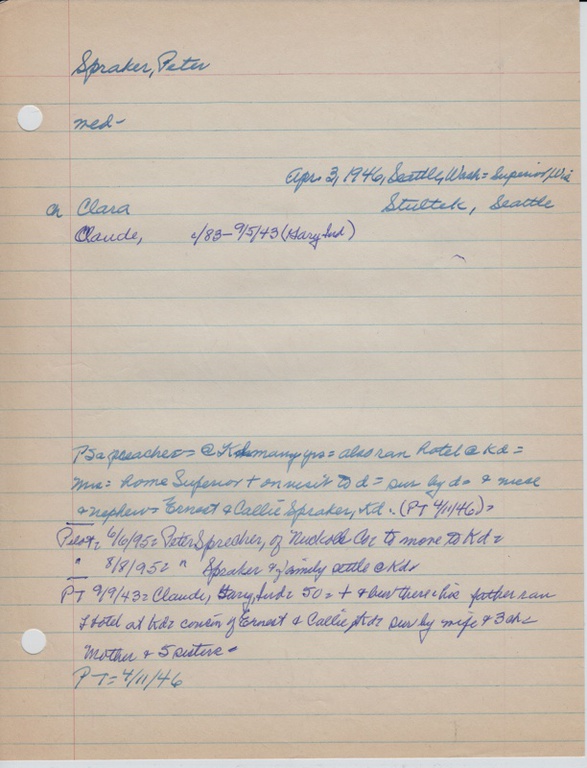 Spraker, Peter
med-
Apr. 3, 1946, Seattle, Wash = Superior, Wis
ch Clara Stultek, Seattle
Claude, c/83 - 9/5/43 (Gary Ind)
P S a preacher = @ Kd = many yrs = also ran hotel @ Kd =
Mrs = home Superior + on visit to d = sur by d = & niece
& nephew = Ernest & Callie Spraker, Kd. (PT 4/11/46) =
Pilot = 6/6/95 = Peter Sprecher, of Nuckolls Co = to move to Kd =
" 8/8/95 = " Spraker & family settle @ Kd =
PT 9/9/43 = Claude, Gary, Ind = 50 = + & bur there = his father ran
Hotel at Kd = cousin of Ernest & Callie, Kd = sur by wife & 3 ch =
Mother & 5 sisters =
PT = 4/11/46